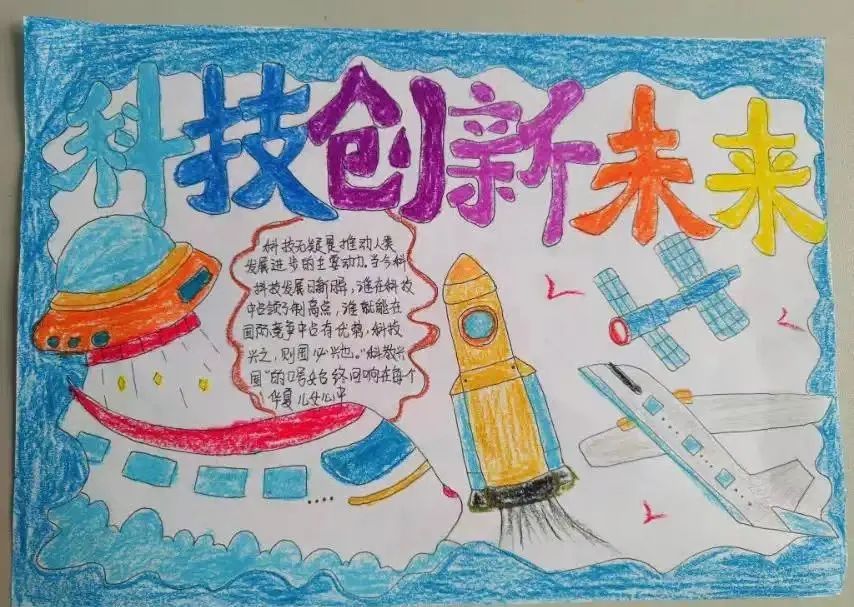 科技创新未来
科技无疑是推动人类
发展进步的主要动力。当今科
科技发展日新月异，谁在科技
中占领了制高点，谁就能在
国际竞争中占有优势，科技
兴之，则国必兴也。“科教兴
国”的口号始终回响在每个
华夏儿女心中